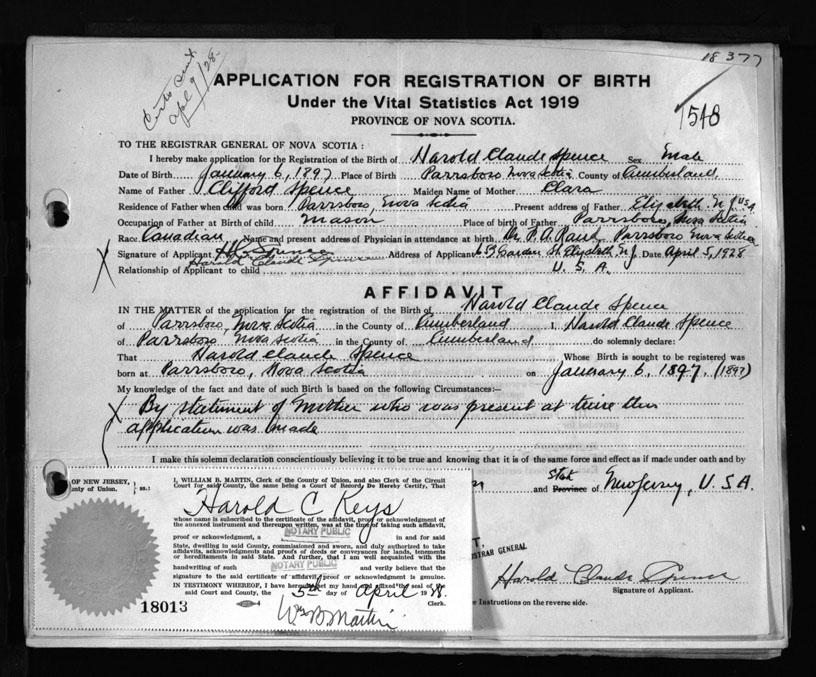 18377
Apl 9/28.
1548
APPLICATION FOR REGISTRATION OF BIRTH
Under the Vital Statistics Act 1919
PROVINCE OF NOVA SCOTIA.
TO THE REGISTRAR GENERAL OF NOVA SCOTIA :
I hereby make application for the Registration of the Birth of Harold Claude Spence Sex Male
Date of Birth January 6, 1897 Place of Birth Parrsboro Nova Scotia County of Cumberland
Name of Father Clifford Spence Maiden Name of Mother Clara
Residence of Father when child was born Parrsboro, Nova Scotia Present address of Father Elizabeth N J USA
Occupation of Father at Birth of child Mason Place of birth of Father Parrsboro, Nova Scotia
Race Canadian Name and present address of Physician in attendance at birth Dr. Rand, Parrsboro Nova Scotia
Signature of Applicant Harold Claude Spence Address of Applicant Garden St Elizabeth N J. Date April 5, 1928
Relationship of Applicant to child U. S. A.
AFFIDAVIT
IN THE MATTER of the application for the registration of the Birth of Harold Claude Spence
of Parrsboro, Nova Scotia in the County of Cumberland I, Harold Claude Spence
of Parrsboro Nova Scotia in the County of Cumberland do solemnly declare:
That Harold Claude Spence Whose Birth is sought to be registered was
born at Parrsboro, Nova Scotia on January 6, 1897. (1897)
My knowledge of the fact and date of such Birth is based on the following Circumstances:—
By statement of Mother who was present at time this
application was made
I make this solemn declaration conscientiously believing it to be true and knowing that it is of the same force and effect as if made under oath and by
and Province State of New Jersey, U. S. A.
OF NEW JERSEY,
unty of Union. ss.:
I, WILLIAM B. MARTIN, Clerk of the County of Union, and also Clerk of the Circuit
Court for said County, the same being a Court of Record, Do Hereby Certify, That
Harold C Keys
whose name is subscribed to the certificate of the affidavit, proof or acknowledgment of
the annexed instrument and thereupon written, was at the time of taking such affidavit,
NOTARY PUBLIC
proof or acknowledgment, a in and for said
State, dwelling in said County, commissioned and sworn, and duly authorized to take
affidavits, acknowledgments and proofs of deeds or conveyances for lands, tenements
or hereditaments in said State. And further, that I am well acquainted with the
handwriting of such NOTARY PUBLIC and verily believe that the
signature to the said certificate of affidavit, proof or acknowledgment is genuine.
IN TESTIMONY WHEREOF, I have hereunto set my hand and affixed the seal of the
said Court and County, the 5th day of April 1928.
Clerk.
Wm B Martin
18013
T,
ISTRAR GENERAL
Harold Claude Spence
Signature of Applicant.
e Instructions on the reverse side.